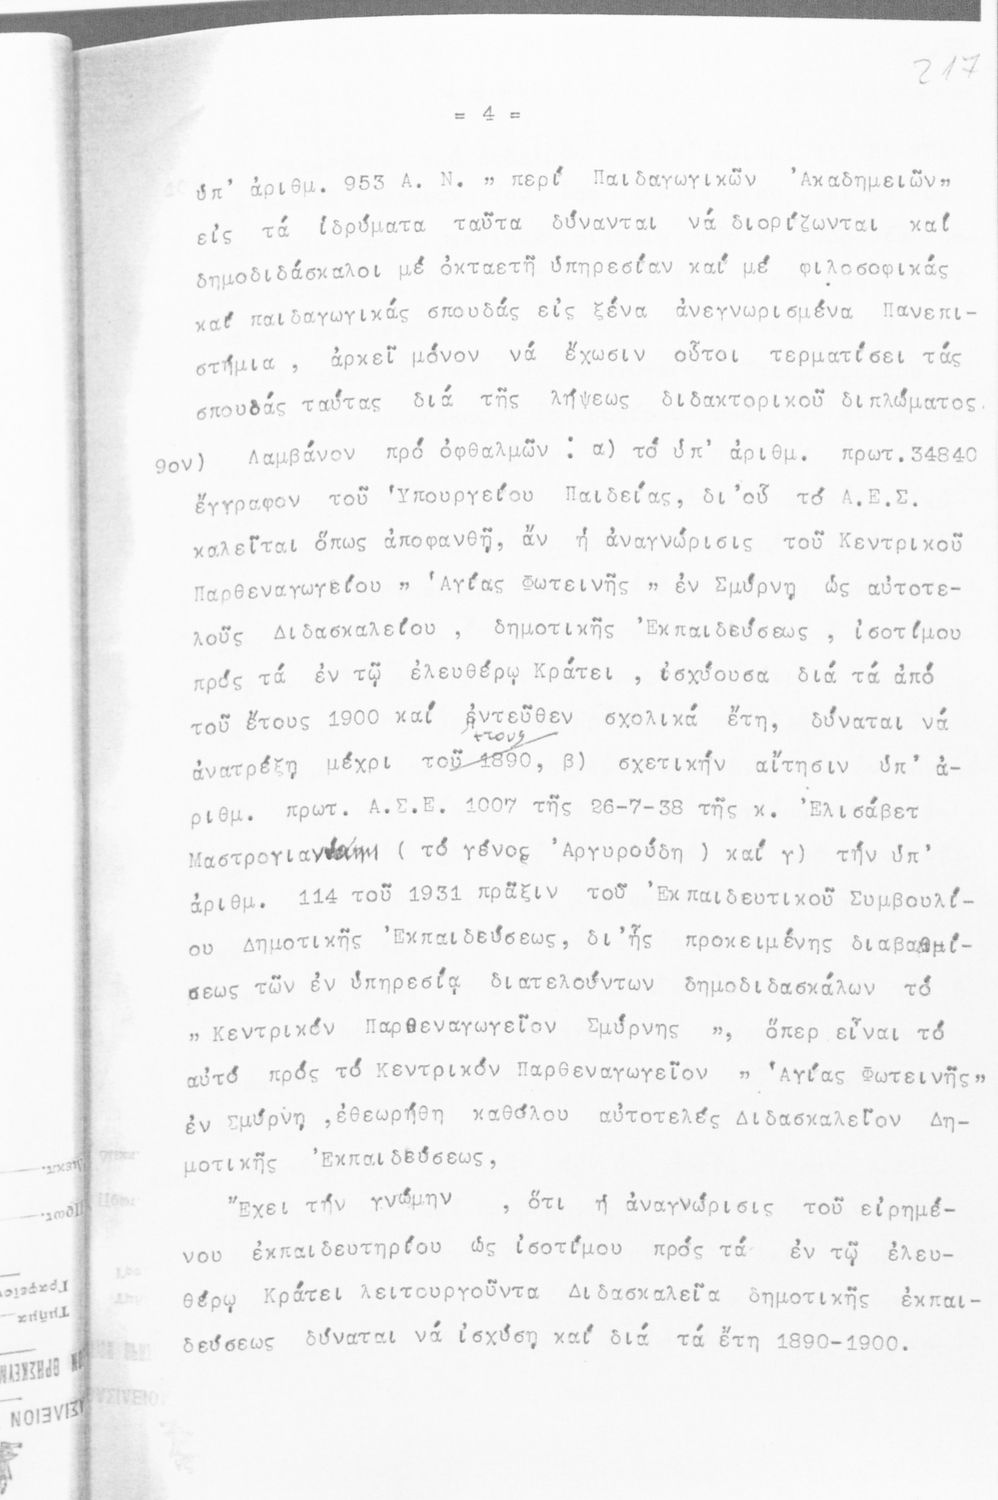 217
= 4 =
ὑπ' ἀριθμ. 953 Α. Ν. „ περί Παιδαγωγικῶν 'Ακαδημειῶν„
εἰς τά ἱδρύματα ταῦτα δύνανται νά διορίζωνται καί
δημοδιδάσκαλοι μέ ὀκταετῆ ὑπηρεσίαν καί μέ φιλοσοφικάς
καί παιδαγωγικάς σπουδάς εἰς ξένα ἀνεγνωρισμένα Πανεπι-
στήμια , ἀρκεῖ μόνον νά ἔχωσιν οὗτοι τερματίσει τάς
σπουδάς ταύτας διά τῆς λήψεως διδακτορικοῦ διπλώματος.
9ον) Λαμβάνον πρό ὀφθαλμῶν : α) τό ὑπ' ἀριθμ. πρωτ.34840
ἔγγραφον τοῦ 'Υπουργείου Παιδείας, δι'οὗ τό Α.Ε.Σ.
καλεῖται ὅπως ἀποφανθῇ, ἄν ἡ ἀναγνώρισις τοῦ Κεντρικοῦ
Παρθεναγωγείου „ 'Αγίας Φωτεινῆς „ ἐν Σμύρνῃ ὡς αὐτοτε-
λοῦς Διδασκαλείου , δημοτικῆς 'Εκπαιδεύσεως , ἰσοτίμου
πρός τά ἐν τῷ ἐλευθέρῳ Κράτει , ἰσχύουσα διά τά ἀπό
τοῦ ἔτους 1900 καί ἐντεῦθεν σχολικά ἔτη, δύναται νά
ἀνατρέξῃ μέχρι τοῦ ἔτους 1890, β) σχετικήν αἴτησιν ὑπ' ἀ-
ριθμ. πρωτ. Α.Σ.Ε. 1007 τῆς 26-7-38 τῆς κ. 'Ελισάβετ
( τό γένος 'Αργυρούδη ) καί γ) τήν ὑπ'
ἀριθμ. 114 τοῦ 1931 πρᾶξιν τοῦ 'Εκπαιδευτικοῦ Συμβουλί-
ου Δημοτικῆς 'Εκπαιδεύσεως, δι'ἧς προκειμένης διαβαθμί-
σεως τῶν ἐν ὑπηρεσίᾳ διατελούντων δημοδιδασκάλων τό
„ Κεντρικόν Παρθεναγωγεῖον Σμύρνης „, ὅπερ εἶναι τό
αὐτό πρός τό Κεντρικόν Παρθεναγωγεῖον „ 'Αγίας Φωτεινῆς„
ἐν Σμύρνῃ ,ἐθεωρήθη καθόλου αὐτοτελές Διδασκαλεῖον Δη-
μοτικῆς 'Εκπαιδεύσεως,
"Εχει τήν γνώμην , ὅτι ἡ ἀναγνώρισις τοῦ εἰρημέ-
νου ἐκπαιδευτηρίου ὡς ἰσοτίμου πρός τά ἐν τῷ ἐλευ-
θέρῳ Κράτει λειτουργοῦντα Διδασκαλεῖα δημοτικῆς ἐκπαι-
δεύσεως δύναται νά ἰσχύσῃ καί διά τά ἔτη 1890-1900.